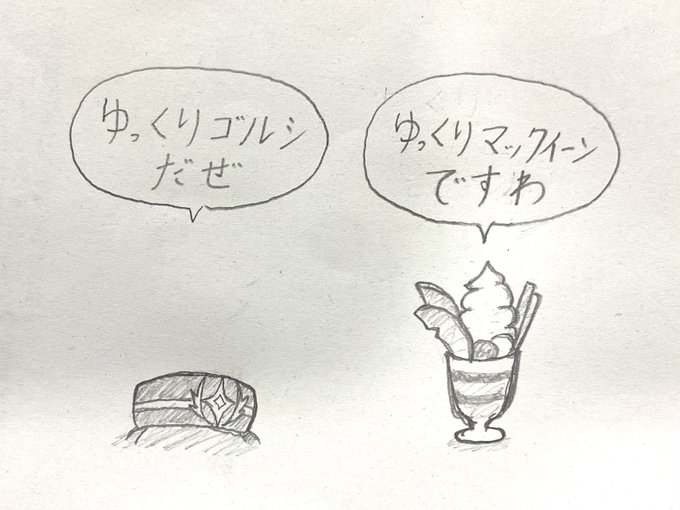 ゆっくりゴルシ
だぜ
ゆっくりマックイーン
ですわ